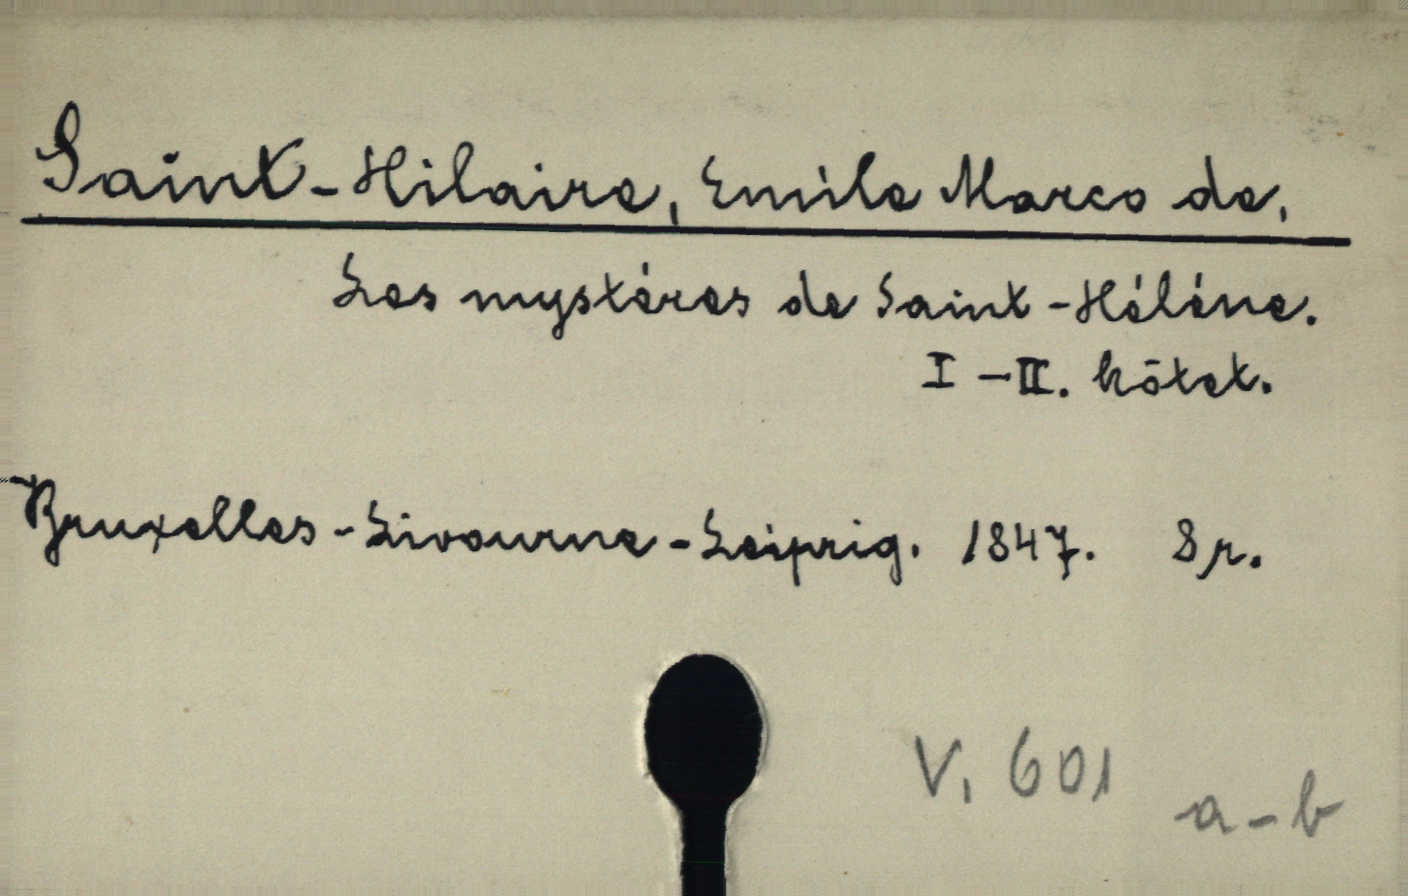 Saint-Hilaire, Emile Marco de.
Les mystéres de Saint-Héléne.
I-II. kötet.
Bruxelles-Livourne-Leipzig. 1847. 8r.
V. 601
a-b